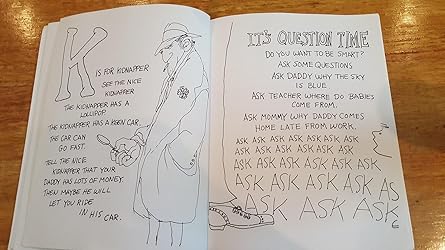 K
IS FOR KIDNAPPER
SEE THE NICE
KIDNAPPER
THE KIDNAPPER HAS A
LOLLIPOP.
THE KIDNAPPER HAS A KEEN CAR.
THE CAR CAN
GO FAST.
TELL THE NICE
KIDNAPPER THAT YOUR
DADDY HAS LOTS OF MONEY.
THEN MAYBE HE WILL
LET YOU RIDE
IN HIS CAR.
IT'S QUESTION TIME
DO YOU WANT TO BE SMART?
ASK SOME QUESTIONS
ASK DADDY WHY THE SKY
IS BLUE
ASK TEACHER WHERE DO BABIES
COME FROM.
ASK MOMMY WHY DADDY COMES
HOME LATE FROM WORK.
ASK ASK ASK ASK ASK ASK ASK
ASK ASK ASK ASK ASK ASK
ASK ASK ASK ASK ASK ASK
ASK ASK ASK ASK ASK AS
ASK ASK ASK ASK
ASK ASK ASK